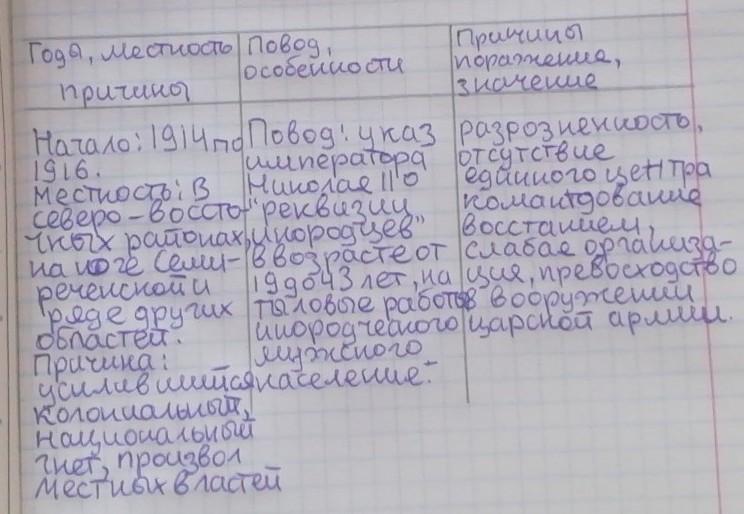 Года, местность
причины
Повод,
особенности
Причины
поражение,
значение
Начало: 1914 по
1916.
местность: В
северо-восто-
чных районах,
на юге Семи-
реченской и
ряде других
областей.
Причина:
усилившийся
колониальный,
национальный
гнет, произвол
местных властей
Повод: указ
императора
Николае II о
"реквизиц
инородцев"
в возрасте от
19 до 43 лет, на
тыловые работы
инородческого
мужского
население.
разрозненность,
отсутствие
единого центра
командование
восстанием,
слабая организа-
ция, превосходство
в вооружении
царской армии.